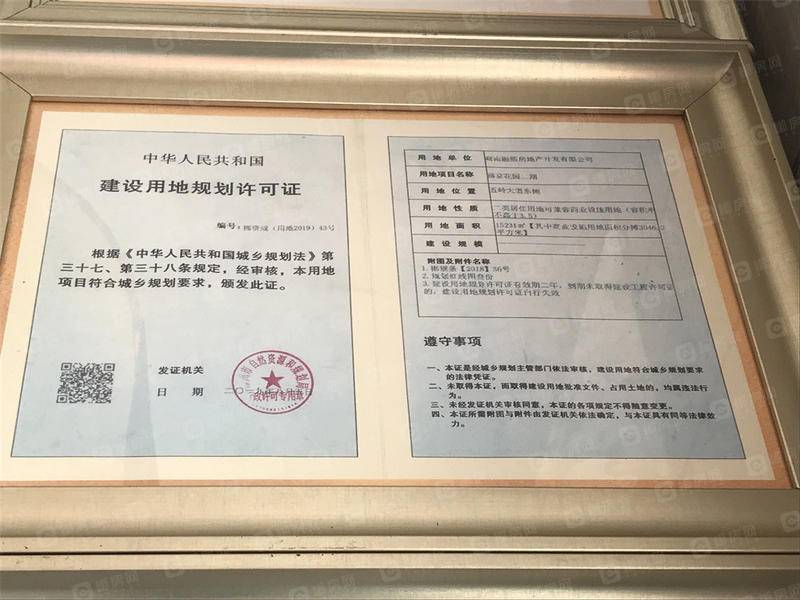 中华人民共和国
建设用地规划许可证
编号:郴资规（用地2019）43号
根据《中华人民共和国城乡规划法》第
三十七、第三十八条规定，经审核，本用地
项目符合城乡规划要求，颁发此证。
发证机关
日 期
市自然资源和规划局
政许可专用章
用地单位 房地产开发有限公司
用地项目名称 花园二期
用地位置 五岭大道东侧
用地性质 二类居住用地可兼容商业设施用地（容积率
不高于3.5）
用地面积 15231㎡【其中商业设施用地面积分摊3046.2
平方米】
建设规模
附图及附件名称
1. 郴规条【2018】36号
2. 规划红线图叁份
3. 建设用地规划许可证有效期二年，到期未取得建设工程许可证
的，建设用地规划许可证自行失效
遵守事项
一、本证是经城乡规划主管部门依法审核，建设用地符合城乡规划要求
的法律凭证。
二、未取得本证，而取得建设用地批准文件、占用土地的，均属违法行
为。
三、未经发证机关审核同意，本证的各项规定不得随意变更。
四、本证所需附图与附件由发证机关依法确定，与本证具有同等法律效
力。